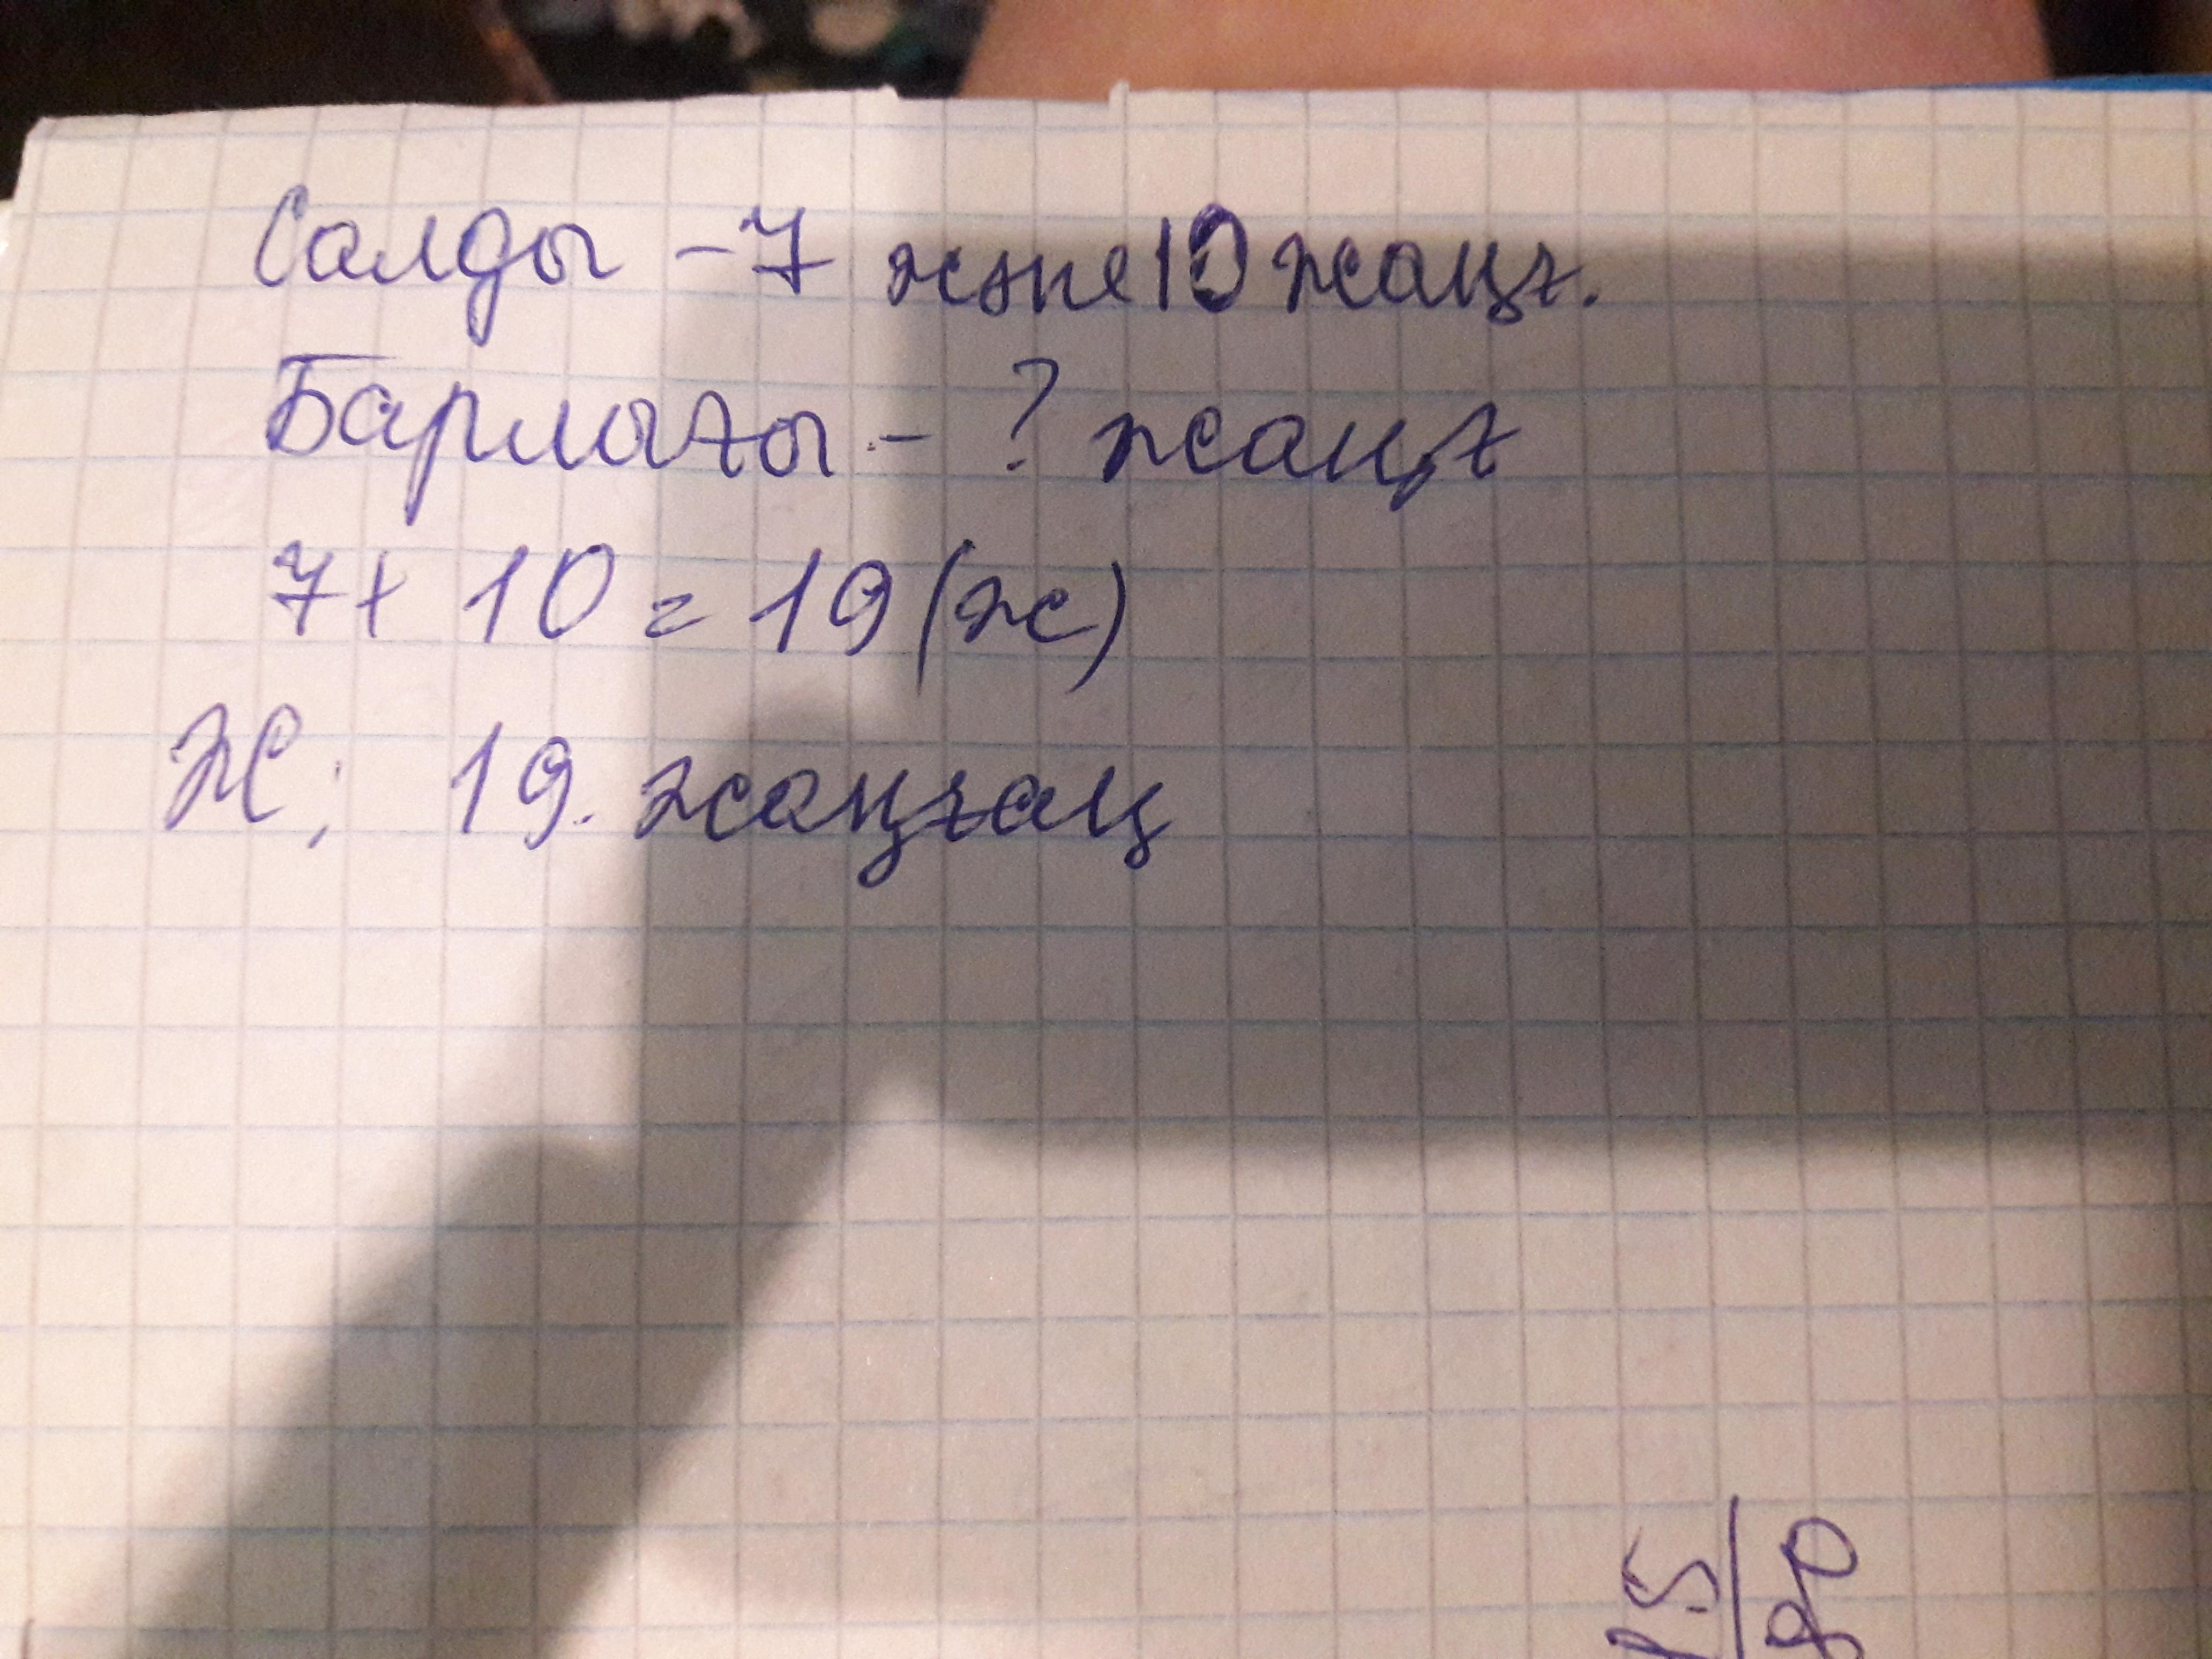 Салды – 7 және 10 жаңғ.
Барлығы – ? жаңғ
7 + 10 = 19 (ж)
Ж: 19. жаңғаң